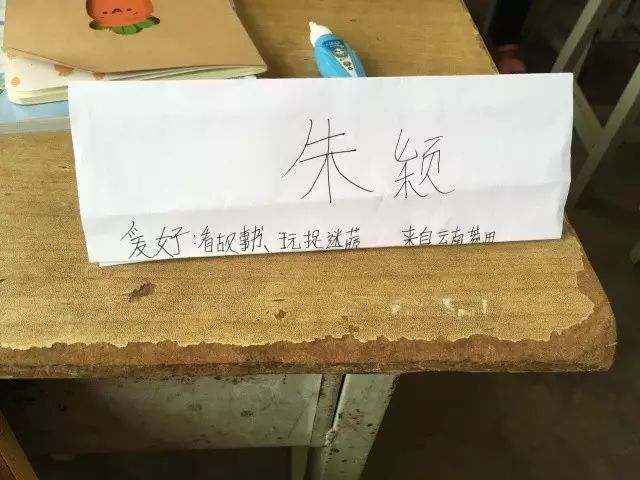 朱颖
爱好:看故事书、玩捉迷藏 来自云南